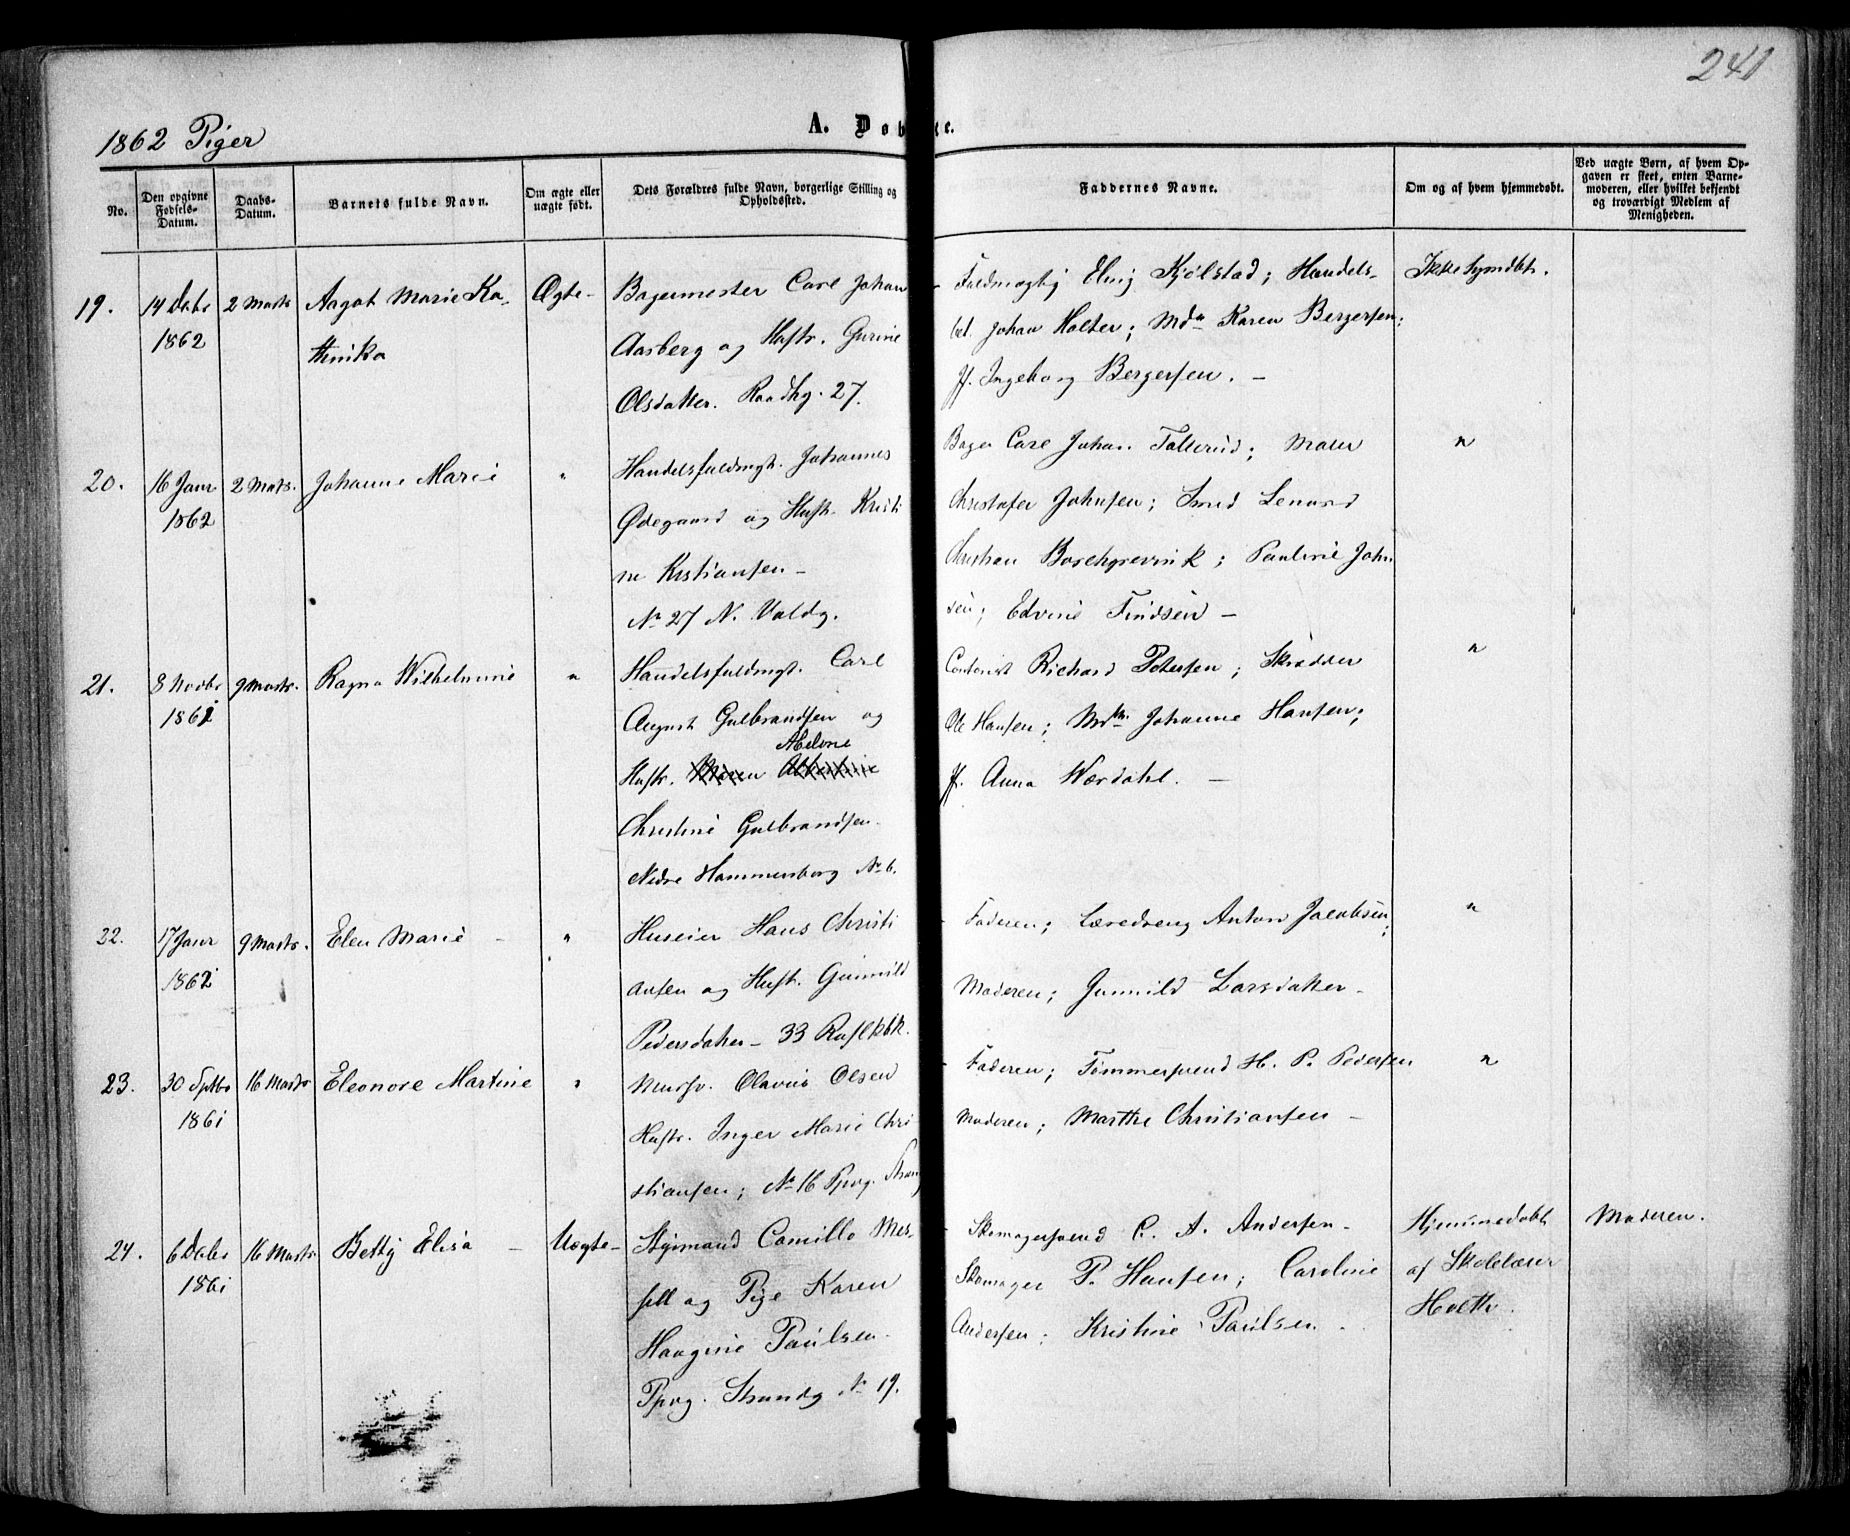 241
1862 Piger
A. Døbte.
No.
Den opgivne Fødsels-Datum.
Daabs-Datum.
Barnets fulde Navn.
Om ægte eller uægte født.
Dets Forældres fulde Navn, borgerlige Stilling og Opholdssted.
Faddernes Navne.
Om og af hvem hjemmedøbt.
Ved uægte Børn, af hvem Opgaven er skeet, enten Barnemoderen, eller hvilket bekjendt og troværdigt Medlem af Menigheden.
19.
14 Debr
1862
2 Marts
Aagot Marie Ka-
thinka
Ægte
Bagermester Carl Johan
Aasberg og Hustr. Gurine
Olsdatter. Raadhg. 27.
Fuldmægtig Elling Kjølstad; Handels-
bet. Johan Holter; Mdm Karen Bergersen;
Jf. Ingeborg Bergersen.
Ikke hjmdbt.
20.
16 Janr
1862
2 Marts.
Johanne Marie
"
Handelsfuldmgt. Johannes
Ødegaard og Hustr. Kristi
ne Kristiansen
No 27 N. Voldg.
Bager Carl Johan Tollerud; Maler
Christofer Johnsen; Smed Lenard
Christian Borchgrevink; Pauline John
sen; Edvine Findsen
"
21.
8 Novbr
1861
9 Marts.
Ragna Wilhelmine
"
Handelsfuldmgt. Carl
August Gulbrandsen og
Abelone
Hustr.
Christine Gulbrandsen.
Nedre Hammersborg No 6.
Contorist Richard Petersen; Skrædder
Ole Hansen; Mdm. Johanne Hansen;
Jf. Anna Werdahl.
"
22.
17 Janr
1862
9 Marts.
Elen Marie
"
Huseier Hans Christi
ansen og Hustr. Gunnild
Pedersdatter 33 Raslkbk.
Faderen; Læredreng Anton Jacobsen;
Moderen; Gunnild Larsdatter
"
23.
30 Septbr
1861
16 Marts
Eleonore Martine
"
Mursv. Olavus Olsen
Hustr. Inger Marie Chri
stiansen; No 16 Ppvg. Strandg
Faderen; Tømmersvend H. P. Pedersen
Moderen; Marthe Christiansen
"
24.
6 Debr
1861
16 Marts.
Betty Elisa
Uægte
Styrmand Camillo Mes-
sell og Pige Karen
Haagine Paulsen.
Ppvg. Strandg No 19.
Skomagersvend C. A. Andersen
Skomager P. Hansen; Caroline
Andersen; Kristine Paulsen.
Hjemmedøbt
af Skolelærer
Holth.
Moderen.